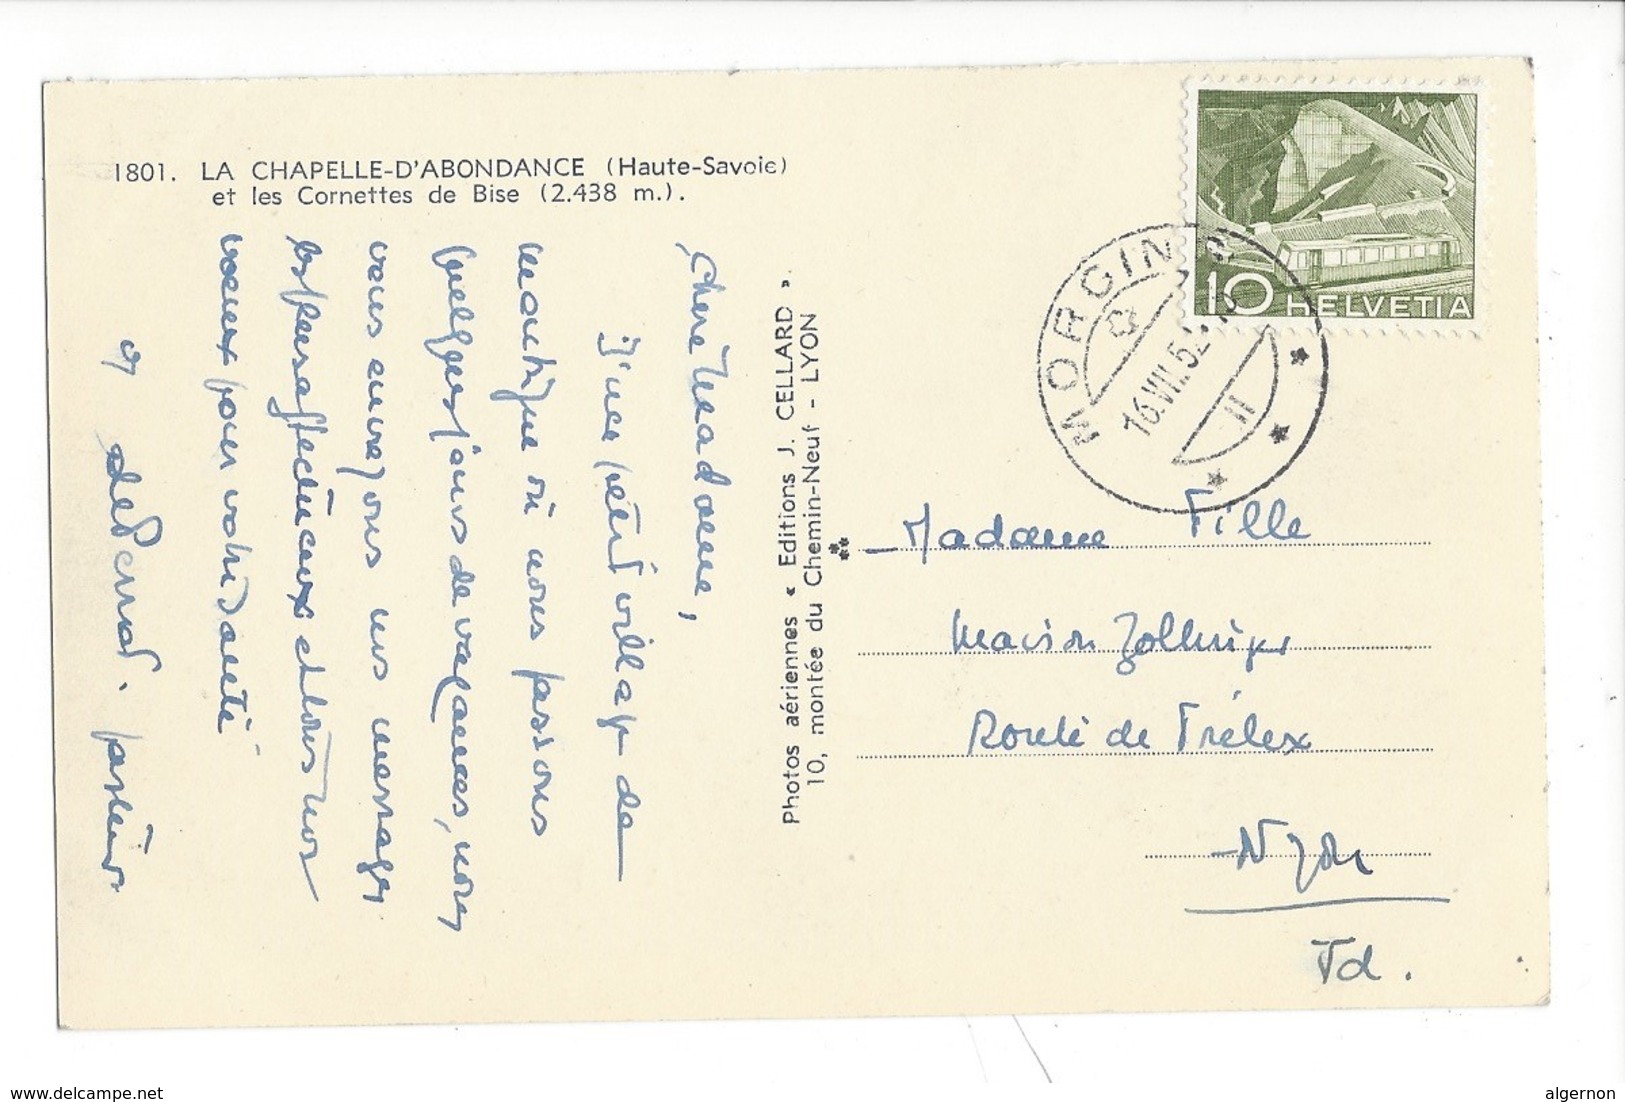 1801. LA CHAPELLE-D'ABONDANCE (Haute-Savoie)
et les Cornettes de Bise (2.438 m.).
Chère Madame,
D'un petit village de
montagne où nous passons
quelques jours de vacances, nous
vous envoyons nos messages
les plus affectueux et tous nos
voeux pour votre santé
pasteur
Photos aériennes « Editions J. CELLARD ».
10, montée du Chemin-Neuf - LYON
10 HELVETIA
MORGINS
16.VII.52
Madame Fille
Maison Zollinger
Route de Trélex
Nyon
Vd.
delcampe.net
algernon